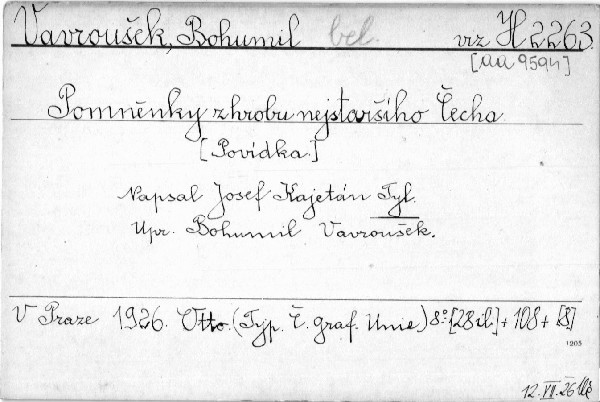 Vavroušek, Bohumil bel. viz H 2263.
[aa 9594]
Pomněnky z hrobu nejstaršího Čecha.
[Povídka.]
Napsal Josef Kajetán Tyl.
Upr. Bohumil Vavroušek.
V Praze 1926. Otto. (Typ. Č. graf. Unie) 8° [28 il] + 108 + [8]
1205
12. VII. 26